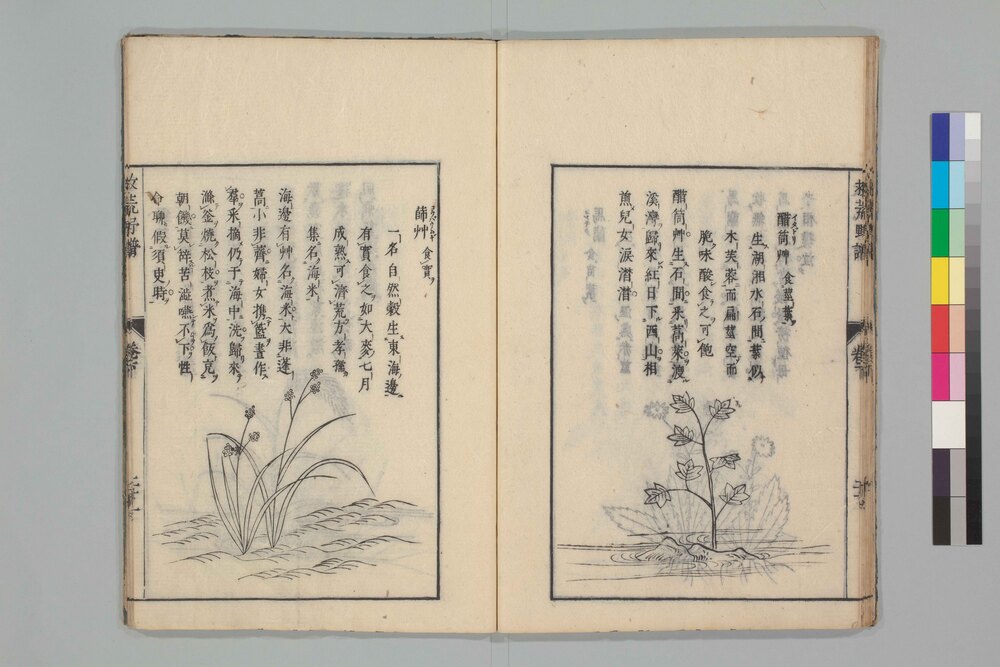 醋筒艸 食莖葉
生湖湘水石間葉似
水芙蓉而扁莖空而
脆味酸食之可飽
醋筒艸生石間采蒿萊溲
溪灣歸來紅日下西山相
煎兒女淚潸潸
救荒野譜
卷下
䔭艸 食實
一名自然穀生東海邊
有實食之如大麥七月
成熟可濟荒方孝孺
集名海米
海邊有艸名海米大非蓬
蒿小非薺婦女携籃晝作
羣采摘仍于海中洗歸來
滌釜燒松枝煮米爲飯充
朝饑莫辭苦澁嚥不下性
命聊假須臾時
救荒野譜
卷下